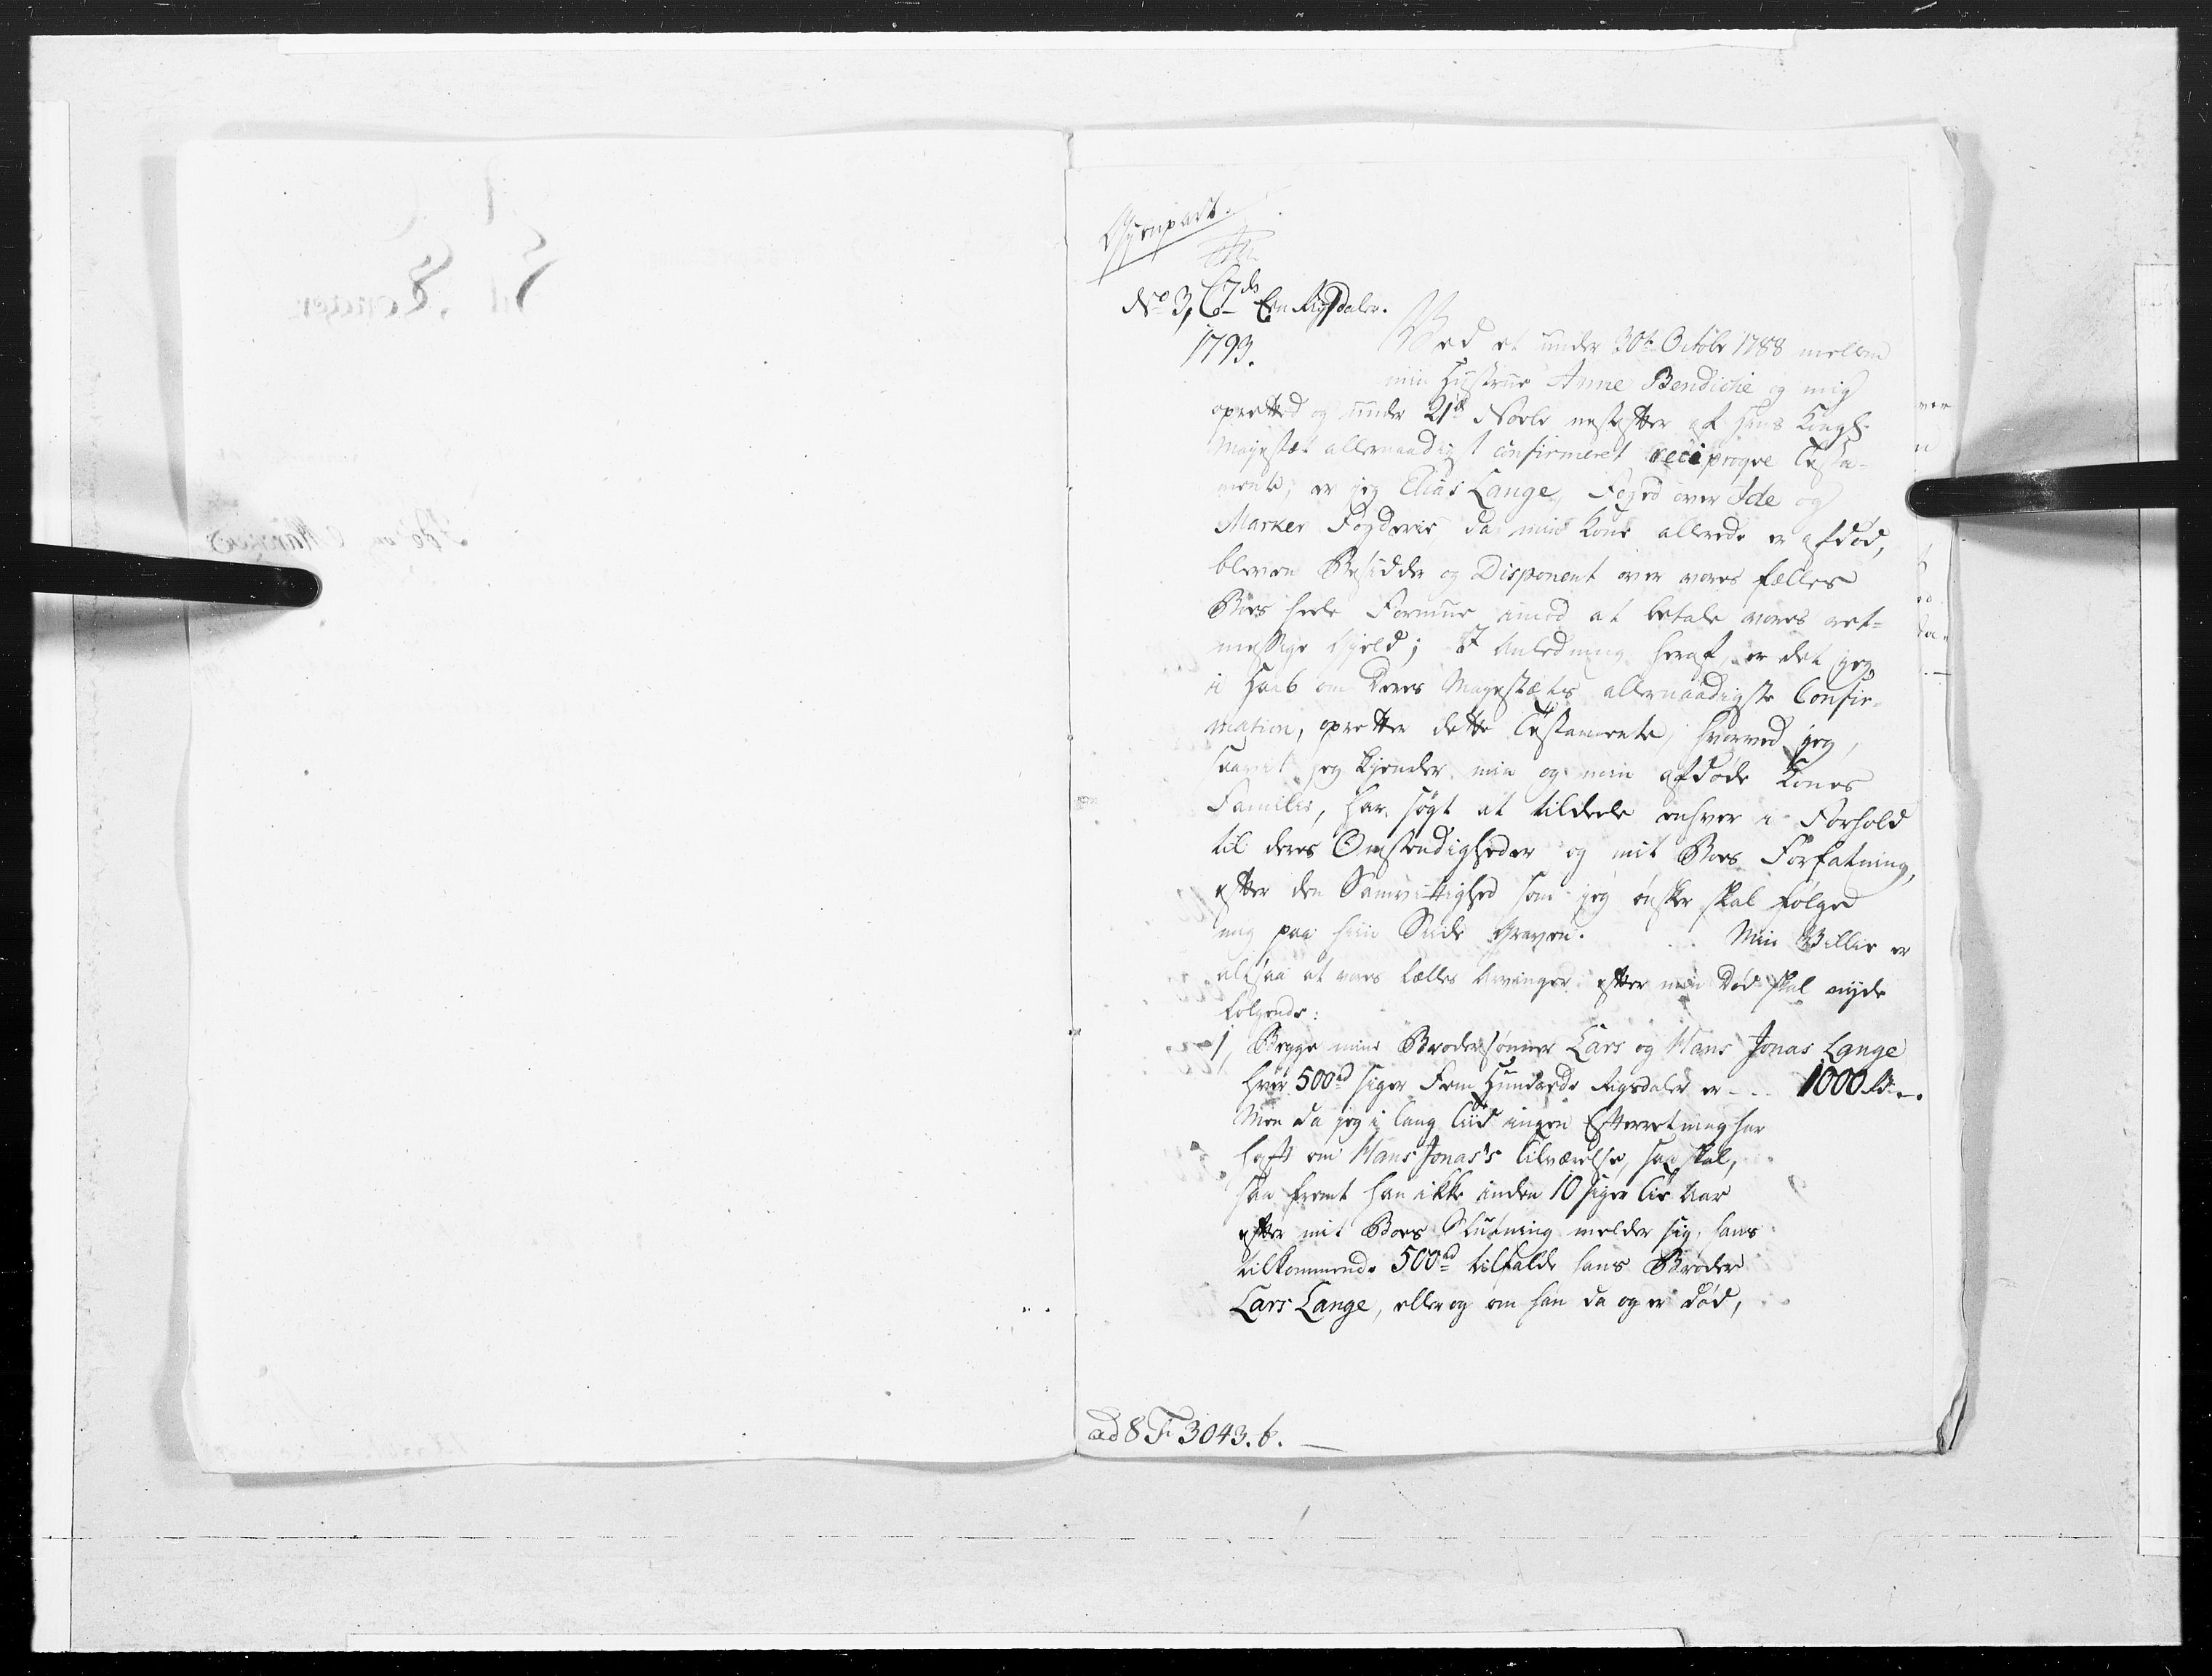 Gienpart.
No 3, C 7de Een Rigsdaler.
1793.
Ved et under 30te Octobr 1788 mellem
min Hustrue Anne Bendiche og mig
opretted og under 21de Novbr nestefter af Hans Kongl:
Mayestæt allernaadigst confirmeret reciproqve Testa-
mente, er jeg Elias Lange, Foged over Ide og
Marker Fogderie da min Kone allerede er afdød,
bleven Besidder og Disponent over vores fælles
Boes heele Formue imod at betale vores ret-
mæssige Gield; I Anledning heraf, er det jeg
i Haab om Deres Mayestæts allernaadigste Confir-
mation, opretter dette Testamente, hvorved jeg,
saavit jeg kiender min og min afdøde Kones
Familie, har søgt at tildeele enhver i Forhold
til deres Omstendigheder og mit Boes Forfatning,
efter den Samvittighed som jeg ønsker skal følge
mig paa hiin Side Graven. Min Villie er
altsaa at vores fælles Arvinger efter min Død skal nyde
følgende:
1, Begge mine Brodersønner Lars og Hans Jonas Lange
hver 500rd siger Fem Hundrede Rigsdaler er - - - 1000 Rd -.
Men da jeg i lang Tiid ingen Efterretning har
haft om Hans Jonas's Tilværelse, saa skal,
saa fremt han ikke inden 10 siger Tie Aar
efter mit Boes Slutning melder sig, hans
tilkommende 500rd tilfalde hans Broder
Lars Lange, eller og om han da og er død,
ad 8 F 3043. b.